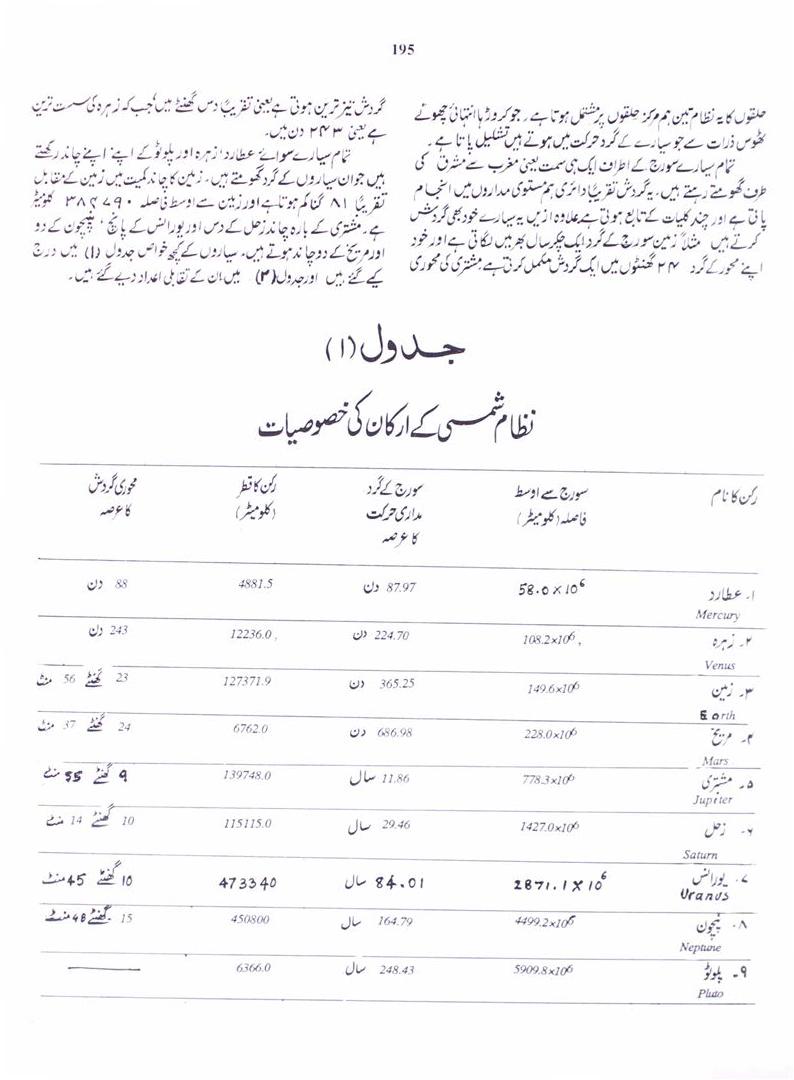 195
حلقوں کا یہ نظام تین ہم مرکز حلقوں پر مشتمل ہوتا ہے، جو کروڑہا انتہائی چھوٹے
ٹھوس ذرات سے جو سیارے کے گرد حرکت میں ہوتے ہیں تشکیل پاتا ہے۔
تمام سیارے سورج کے اطراف ایک ہی سمت یعنی مغرب سے مشرق کی
طرف گھومتے رہتے ہیں۔ یہ گردش تقریباً دائری ہم مستوی مداروں میں انجام
پاتی ہے اور چند کلیات کے تابع ہوتی ہے علاوہ ازیں یہ سیارے خود بھی گردش
کرتے ہیں مثلاً زمین سورج کے گرد ایک چکر سال بھر میں لگاتی ہے اور خود
اپنے محور کے گرد ۲۴ گھنٹوں میں ایک گردش مکمل کرتی ہے مشتری کی محوری
گردش تیز ترین ہوتی ہے یعنی تقریباً دس گھنٹے ہیں جب کہ زہرہ کی سست ترین
ہے یعنی ۲۴۳ دن میں۔
تمام سیارے سوائے عطارد، زہرہ اور پلوٹو کے اپنے اپنے چاند رکھتے
ہیں جو ان سیاروں کے گرد گھومتے ہیں۔ زمین کا چاند کمیت میں زمین کے مقابل
تقریباً ۸۱ گنا کم ہوتا ہے اور زمین سے اوسط فاصلہ ۳۸۲۷۹۰ کلومیٹر
ہے۔ مشتری کے بارہ چاند زحل کے دس اور یورانس کے پانچ، نیپچون کے دو
اور مریخ کے دو چاند ہوتے ہیں۔ سیاروں کے کچھ خواص جدول (۱) میں درج
کیے گئے ہیں اور جدول (۲) میں ان کے تقابلی اعداد دیے گئے ہیں۔
جدول (۱)
نظام شمسی کے ارکان کی خصوصیات
رکن کا نام سورج سے اوسط سورج کے گرد رکن کا قطر محوری گردش
فاصلہ (کلومیٹر) مداری حرکت (کلومیٹر) کا عرصہ
کا عرصہ
۱۔ عطارد 58.0×10⁶ 87.97 دن 4881.5 88 دن
Mercury
۲۔ زہرہ 108.2×10⁶ 224.70 دن 12236.0 243 دن
Venus
۳۔ زمین 149.6×10⁶ 365.25 دن 127371.9 23 گھنٹے 56 منٹ
Earth
۴۔ مریخ 228.0×10⁶ 686.98 دن 6762.0 24 گھنٹے 37 منٹ
Mars
۵۔ مشتری 778.3×10⁶ 11.86 سال 139748.0 9 گھنٹے 55 منٹ
Jupiter
۶۔ زحل 1427.0×10⁶ 29.46 سال 115115.0 10 گھنٹے 14 منٹ
Saturn
۷۔ یورانس 2871.1×10⁶ 84.01 سال 473340 10 گھنٹے 45 منٹ
Uranus
۸۔ نیپچون 4499.2×10⁶ 164.79 سال 450800 15 گھنٹے 48 منٹ
Neptune
۹۔ پلوٹو 5909.8×10⁶ 248.43 سال 6366.0
Pluto